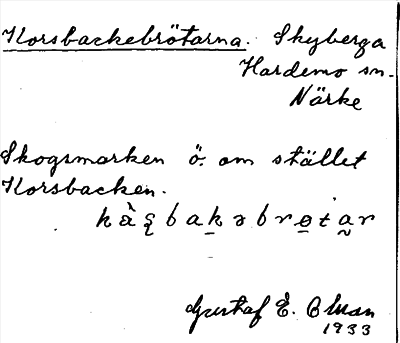 Korsbackebrötarna. Skyberga
Hardemo sn.
Närke
Skogsmarken ö. om stället
Korsbacken.
kàʂbakəbrøtar
Gustaf E. Olman
1933